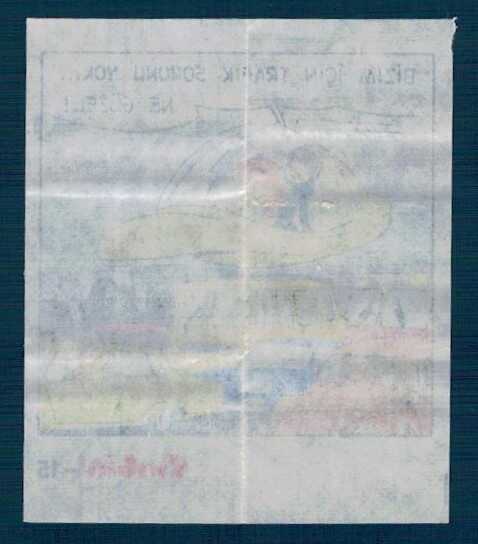 BİZİM İÇİN TRAFİK SORUNU YOK..
NE GÜZEL!
-15